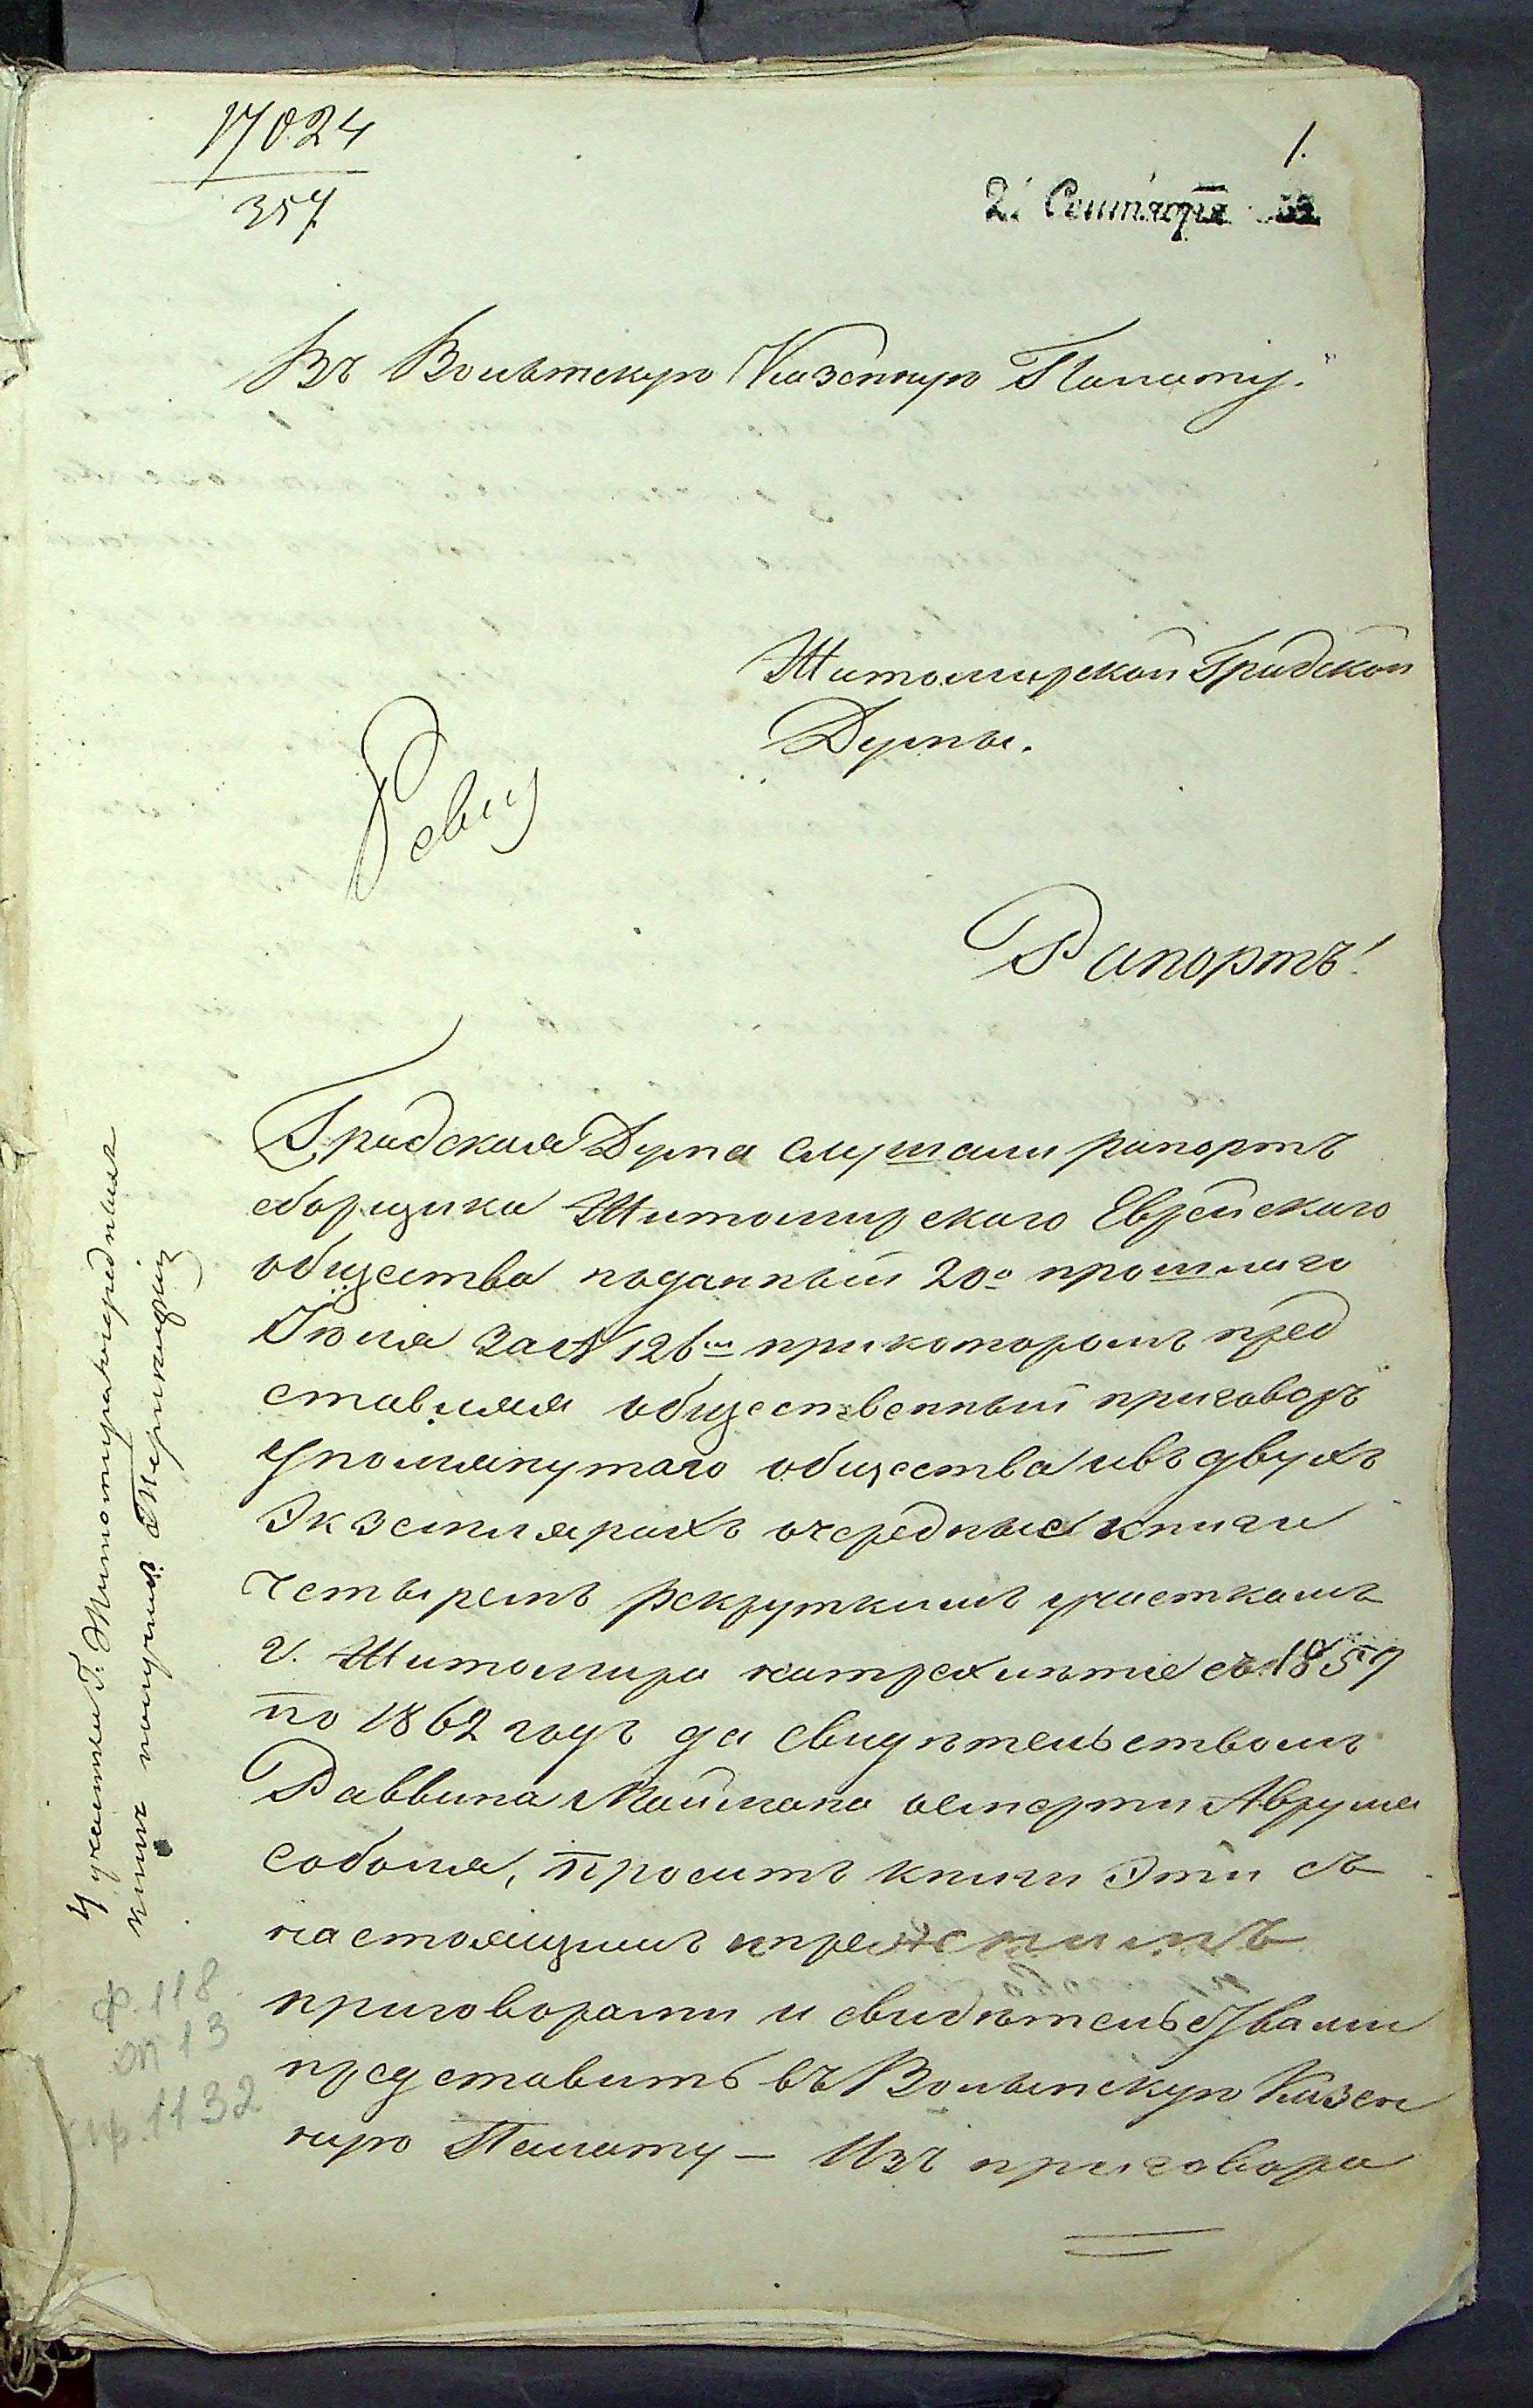 17024
357
1.
2. Сентября
Въ Волынскую Казенную Палату.
Житомирской Градской
Думы.
Ревиз
Рапортъ!
Градская Дума слушали рапортъ
сборщика Житомирскаго Еврейскаго
общества поданный 20го прошлаго
Iюля за № 126м при которомъ пред
ставляя общественный приговоръ
упомянутаго общества и въ двухъ
Экземплярахъ очередные книги
четыремъ рекруткимъ участкамъ
г. Житомира на трехлѣтіе съ 1859
по 1862 годъ да свидѣтельствомъ
Раввина о смерти Аврума
Соболя, проситъ книги Эти съ
настоящимъ и прежнимъ
приговорами и свидѣтельствами
представить въ Волынскую Казен
ную Палату — Изъ приговора
4 участки г. Житомира очередныя
книги получилъ
ф. 118
оп 13
спр. 1132